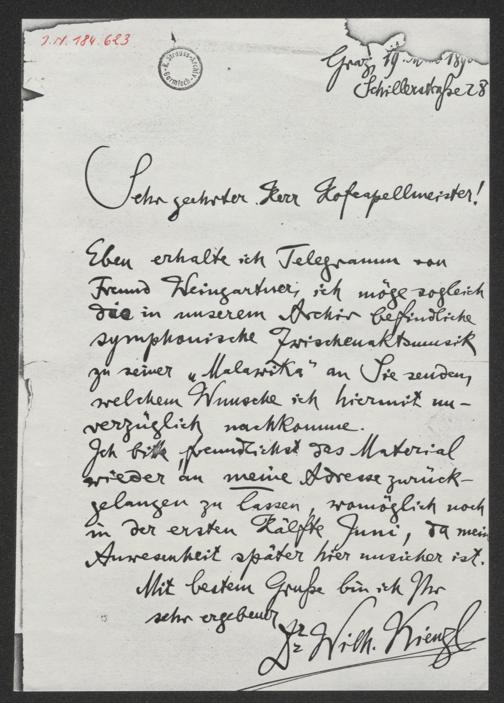 J.N. 184.623
R. Strauss-Archiv
Garmisch
Graz, 19. 18
Schillerstraße 28
Sehr geehrter Herr Hofcapellmeister!
Eben erhalte ich Telegramm von
Freund Weingartner, ich möge sogleich
die in unserem Archiv befindliche
symphonische Zwischenaktsmusik
zu seiner „Malawika" an Sie senden,
welchem Wunsche ich hiermit un-
verzüglich nachkomme.
Ich bitte freundlichst das Material
wieder an meine Adresse zurück-
gelangen zu lassen, womöglich noch
in der ersten Hälfte Juni, da mein
Anwesenheit später hier unsicher ist.
Mit bestem Gruße bin ich Ihr
sehr ergebener
Dr Wilh. Kienzl